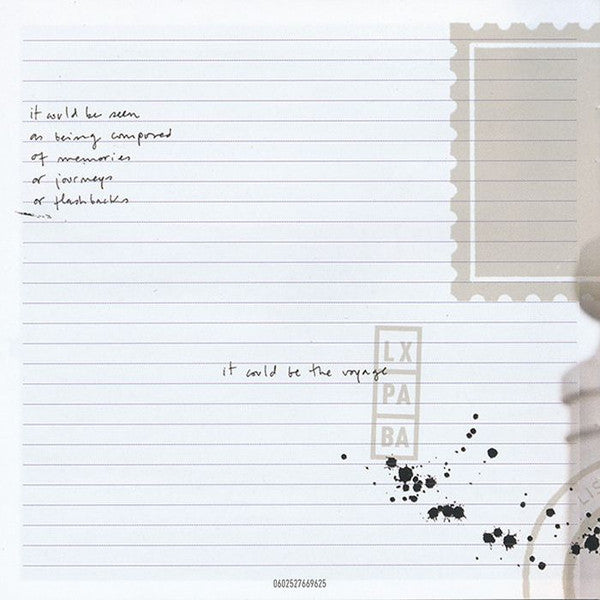 it could be seen
as being composed
of memories
or journeys
or flashbacks
it could be the voyage
LX
PA
BA
LIS
0602527669625